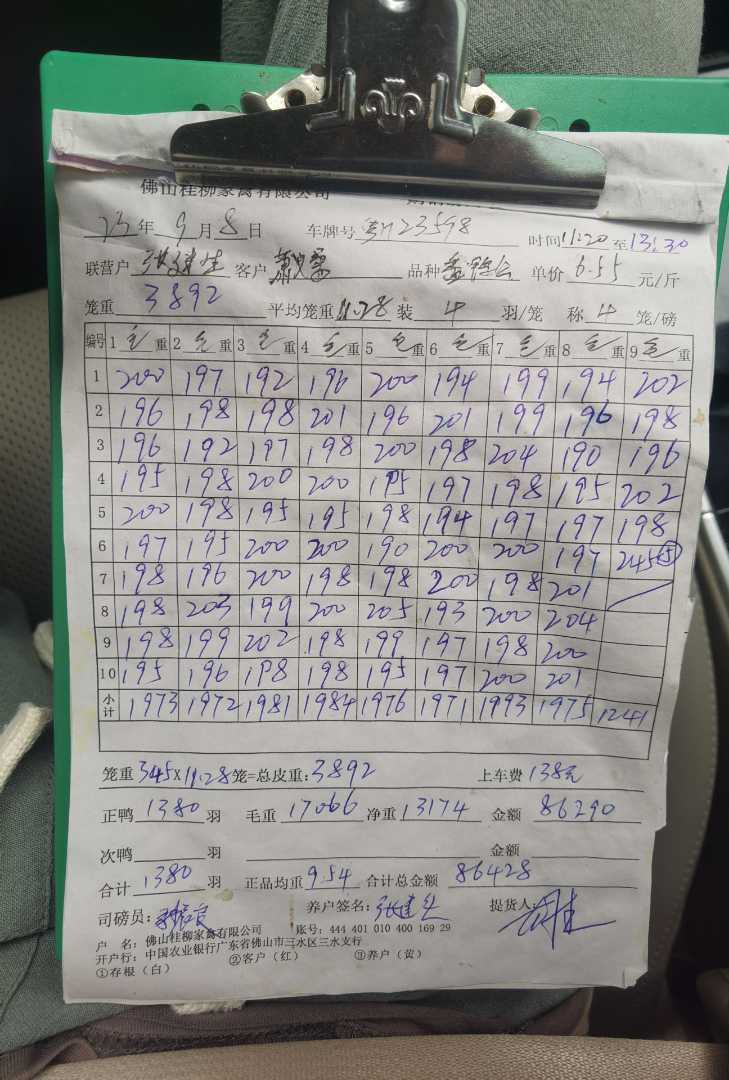 佛山桂柳家禽有限公司
23年9月8日 车牌号 23598 时间11:20至13:30
联营户 张建生 客户 品种 单价 6.55 元/斤
笼重 3892 平均笼重 11.28 装 4 羽/笼 称 4 笼/磅
编号 1 毛重 2 毛重 3 毛重 4 毛重 5 毛重 6 毛重 7 毛重 8 毛重 9 毛重
1 200 197 192 196 200 194 199 194 202
2 196 198 198 201 196 201 199 196 198
3 196 192 197 198 200 198 204 190 196
4 195 198 200 200 195 197 198 195 202
5 200 198 195 195 198 194 197 197 198
6 197 195 200 200 190 200 200 197 245⑤
7 198 196 200 198 198 200 198 201
8 198 203 199 200 205 193 200 204
9 198 199 202 198 199 197 198 200
10 195 196 198 198 195 197 200 201
小计 1973 1972 1981 1984 1976 1971 1993 1975 1241
笼重 345×11.28 笼=总皮重: 3892 上车费 138元
正鸭 1380 羽 毛重 17066 净重 13174 金额 86290
次鸭 羽 金额
合计 1380 羽 正品均重 9.54 合计总金额 86428
司磅员: 养户签名: 张建生 提货人:
户 名: 佛山桂柳家禽有限公司 账号: 444 401 010 400 169 29
开户行: 中国农业银行广东省佛山市三水区三水支行
①存根（白） ②客户（红） ③养户（黄）